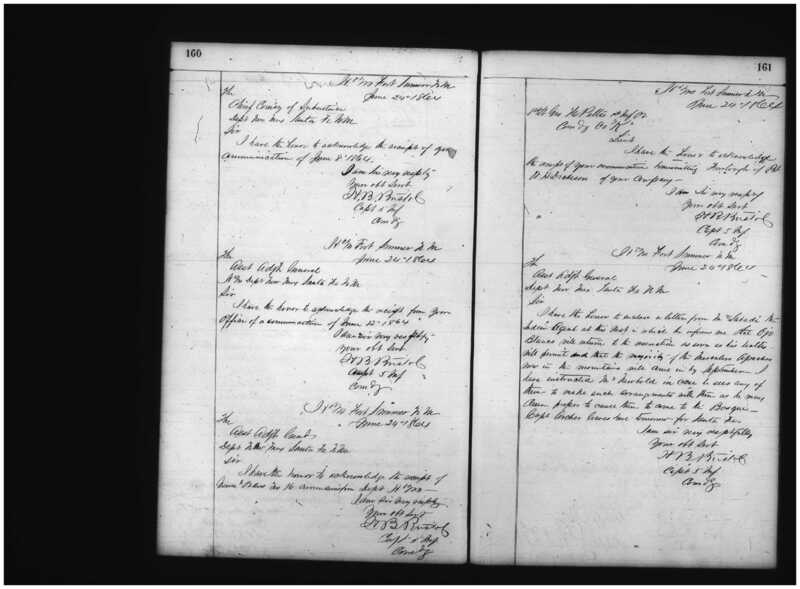 160
Hd Qrs Fort Sumner N.M.
June 24th 1864
The
Chief Comsy of Subsistence
Dept New Mex Santa Fe N.M.
Sir
I have the honor to acknowledge the receipt of your
communication of June 8th 1864.
I am sir very resptly
Your obt Servt
H. B. Bristol
Capt 5 Inf
Comdg
Hd Qrs Fort Sumner N.M.
June 24th 1864
The
Asst Adjt General
Hd Qrs Dept New Mex Santa Fe N.M.
Sir
I have the honor to acknowledge the receipt from your
Office of a communication of June 12th 1864
I am sir very resptly
Your obt Servt
H B Bristol
Capt 5 Inf
Comdg
Hd Qrs Fort Sumner N.M.
June 24th 1864
The
Asst Adjt Genl
Dept N Mex Santa Fe N.M.
Sir
I have the honor to acknowledge the receipt of
Orders No 16 Dept Hd Qrs
I am Sir very resptly
Your obt Servt
H B Bristol
Capt 5 Inf
Comdg
161
Hd Qrs Fort Sumner N.M.
June 24th 1864
Geo H Pettis 1st Inf
Comdg Co K
Lieut
I have the honor to acknowledge
the receipt of your communication transmitting Furlough of Pvt
Dickson of your Company
I am sir very resptly
Your obt Servt
H B Bristol
Capt 5 Inf
Comdg
Hd Qrs Fort Sumner N.M.
June 24th 1864
The
Asst Adjt General
Dept New Mex Santa Fe N.M.
Sir
I have the honor to enclose a letter from Mr Labadi
Indian Agent at this Post in which he informs me that Ojo
Blanco will return to the reservation as soon as his health
will permit and that the majority of the Mescalero Apaches
now in the mountains will come in by September. I
have instructed Mr in case he sees any of
them to make such arrangements with them as he may
deem proper to cause them to come to the Bosque
Capt for Santa Fe
I am sir very resptfully
Your obt Servt
H B Bristol
Capt 5 Inf
Comdg